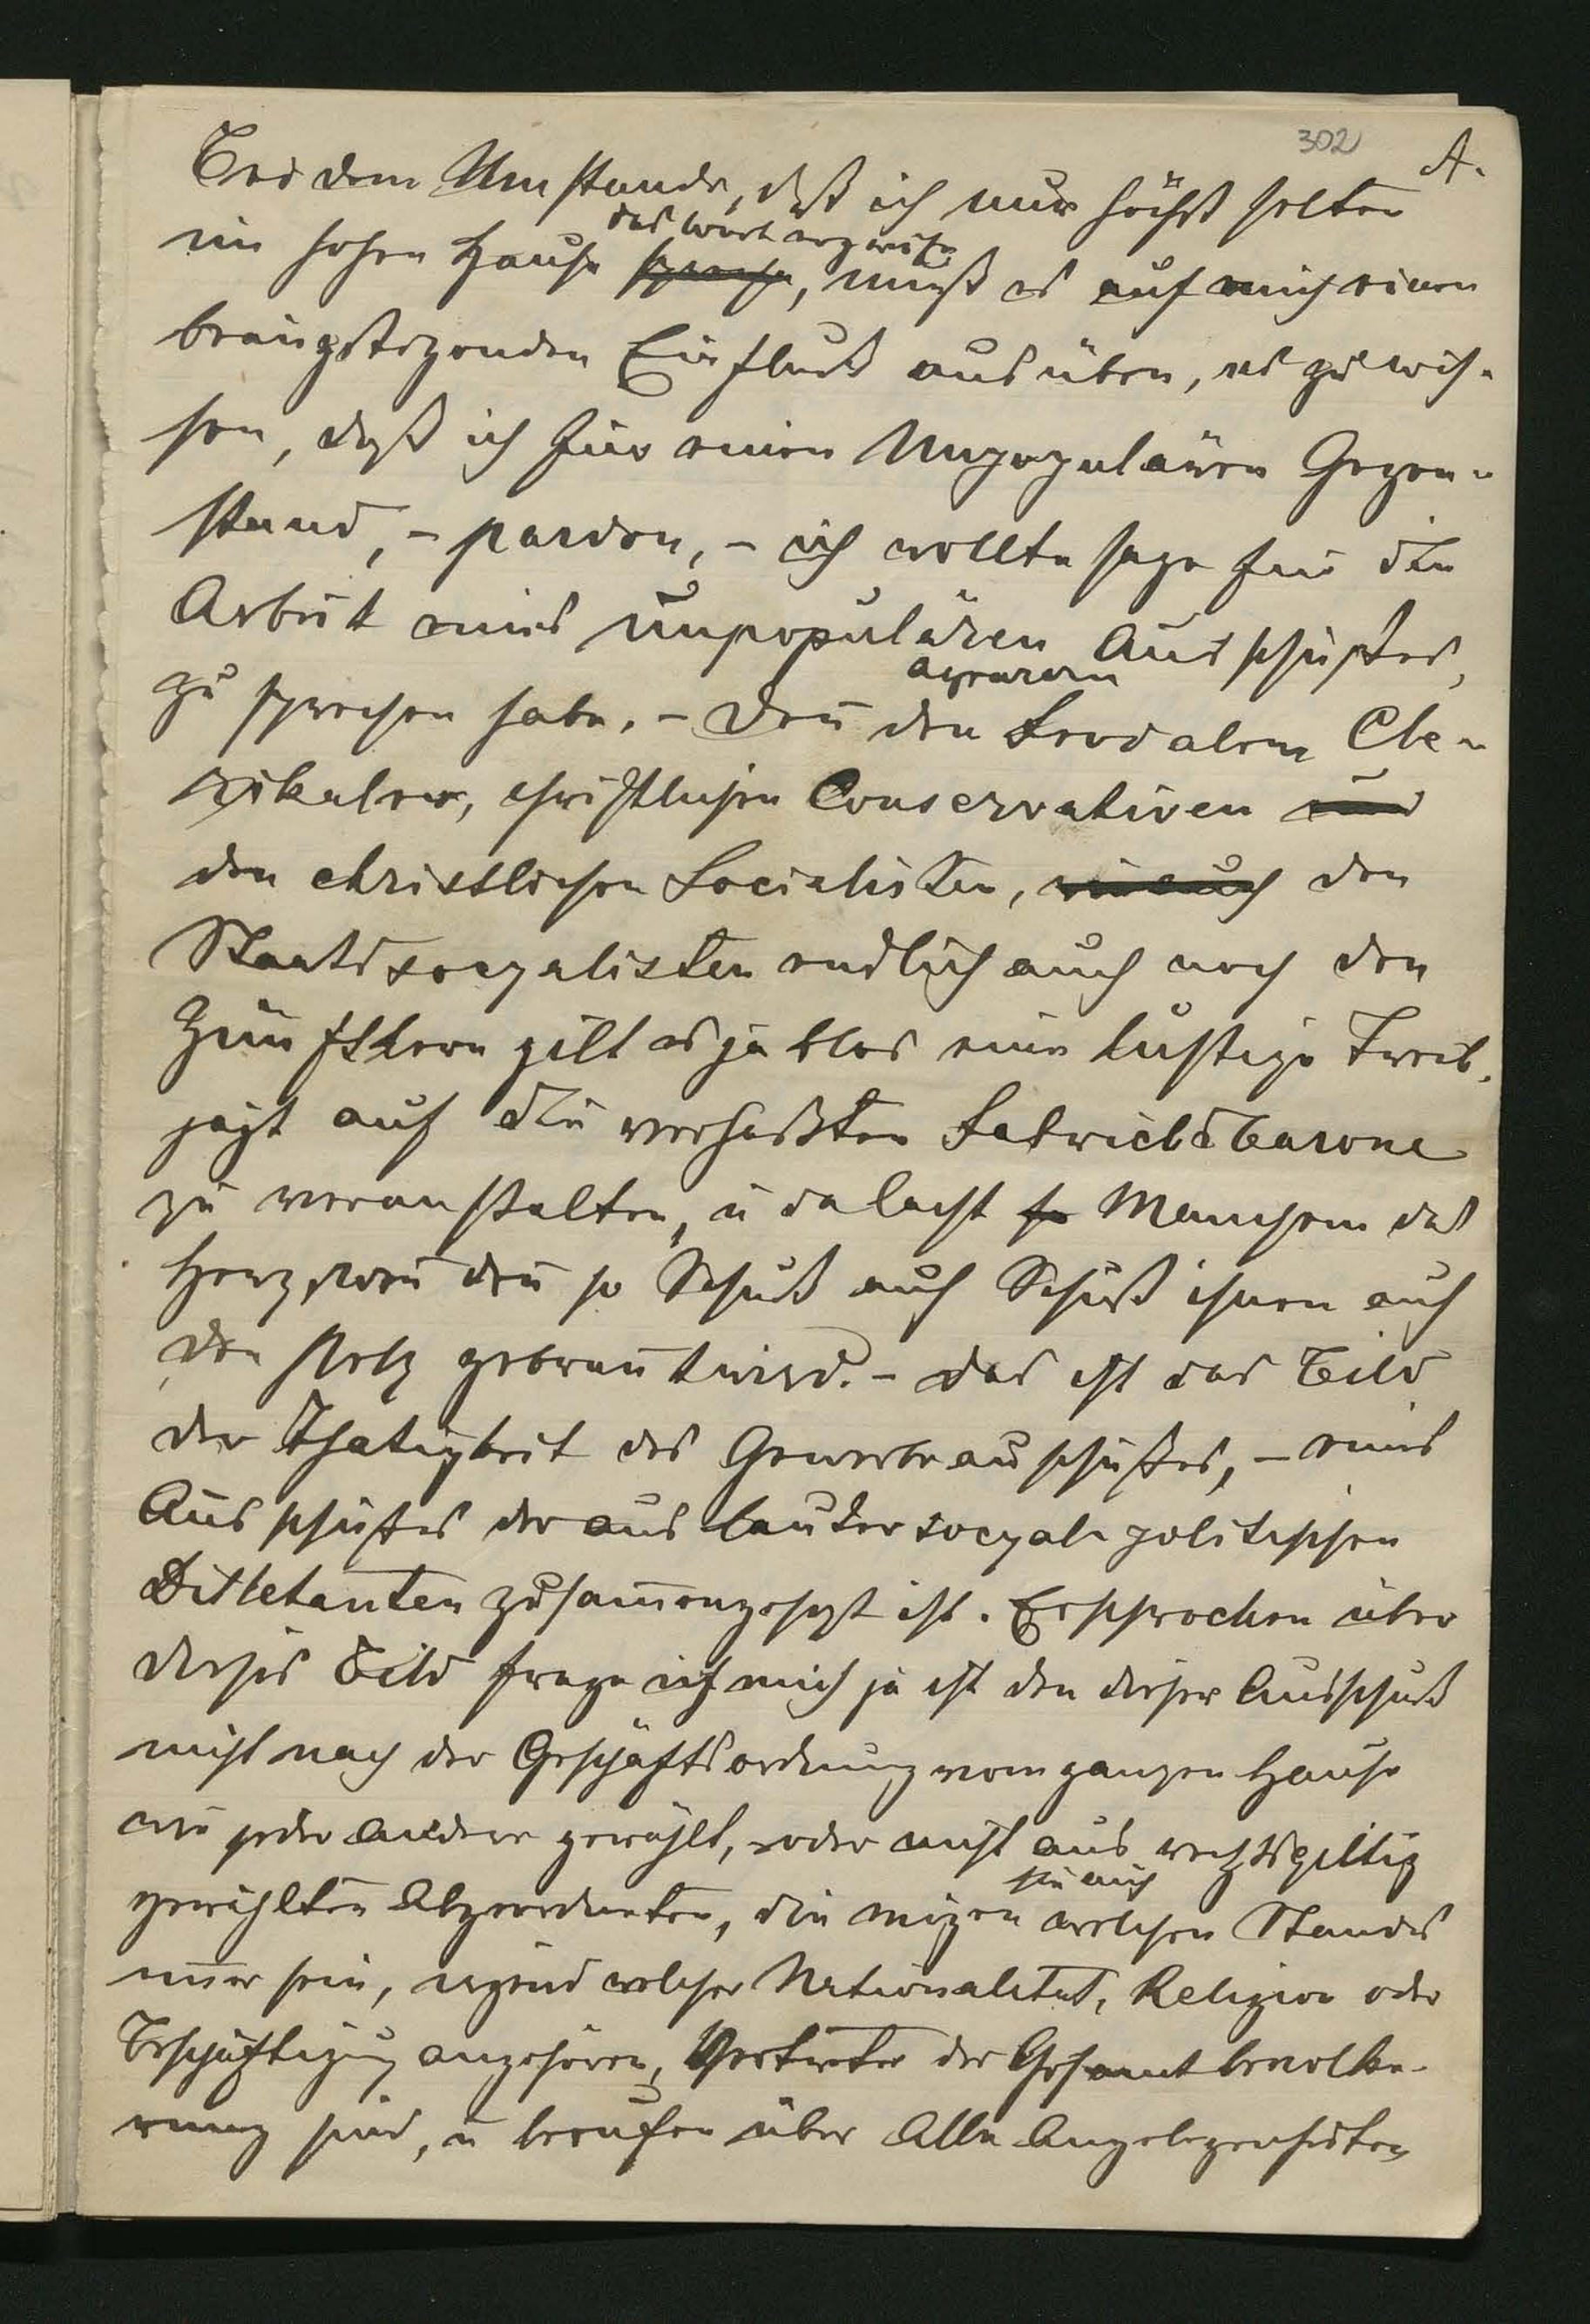 302 A.
Bei dem Umstande, daß ich nur höchst selten
das Wort ergreife
im hohen Hause spreche, muß es auf mich einen
beängstigenden Einfluß ausüben, es zu wis-
sen, daß ich für einen Unpopulären Gegen-
stand, - pardon, - ich wollte sage für die
Arbeit eines unpopulären Ausschußes,
agraren
zu sprechen habe. - Den den Feodalem Cle-
rikaler, christlichen Conservativen und
den christlichen Socialisten, wie auch den
Staatssocyalisten endlich auch noch den
Zünftlern gilt es ja blos eine lustige Treib-
jagt auf die verhaßten Fabrieksbarone
zu veranstalten, u da lacht so Manchem das
Herz, wen den so Schuß auf Schuß ihnen auf
den Pelz gebrant wird. - das ist das Bild
der Thatigkeit des Gewerbeausschußes, - eines
Ausschußes der aus lauter socyal politischen
Dilletanten zusamengesezt ist. Erschrocken über
dieses Bild frage ich mich ja ist den dieser Ausschuß
nicht nach der Geschäftsordnung vom ganzen Hause
wie jeder andere gewählt, oder nicht aus rechtsgiltig
sie auch
gewählten Abgeordneten, die mögen welchen Standes
imer sein, irgend welcher Nationalitat, Religion oder
Beschäftigung angehören, Vertreter der Gesamtbevölke-
rung sind, u berufen über Alle Angelegenheiten